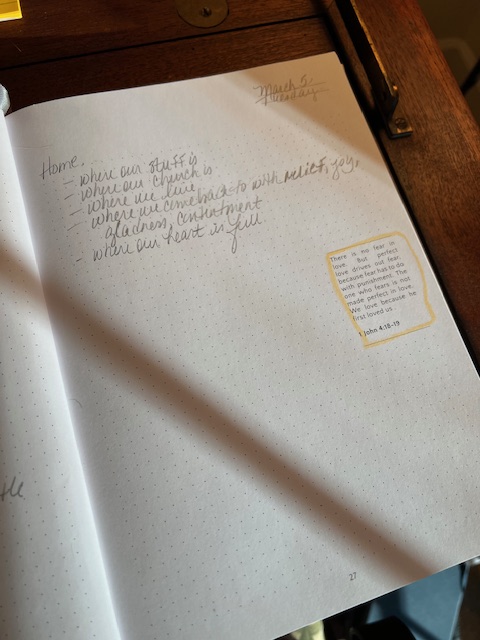 March 5.
Tuesday
Home.
- where our stuff is
- where our church is
- where we live
- where we come back to with relief, joy,
gladness, contentment
- where our heart is full
There is no fear in
love. But perfect
love drives out fear,
because fear has to do
with punishment. The
one who fears is not
made perfect in love.
We love because he
first loved us
John 4:18-19
27